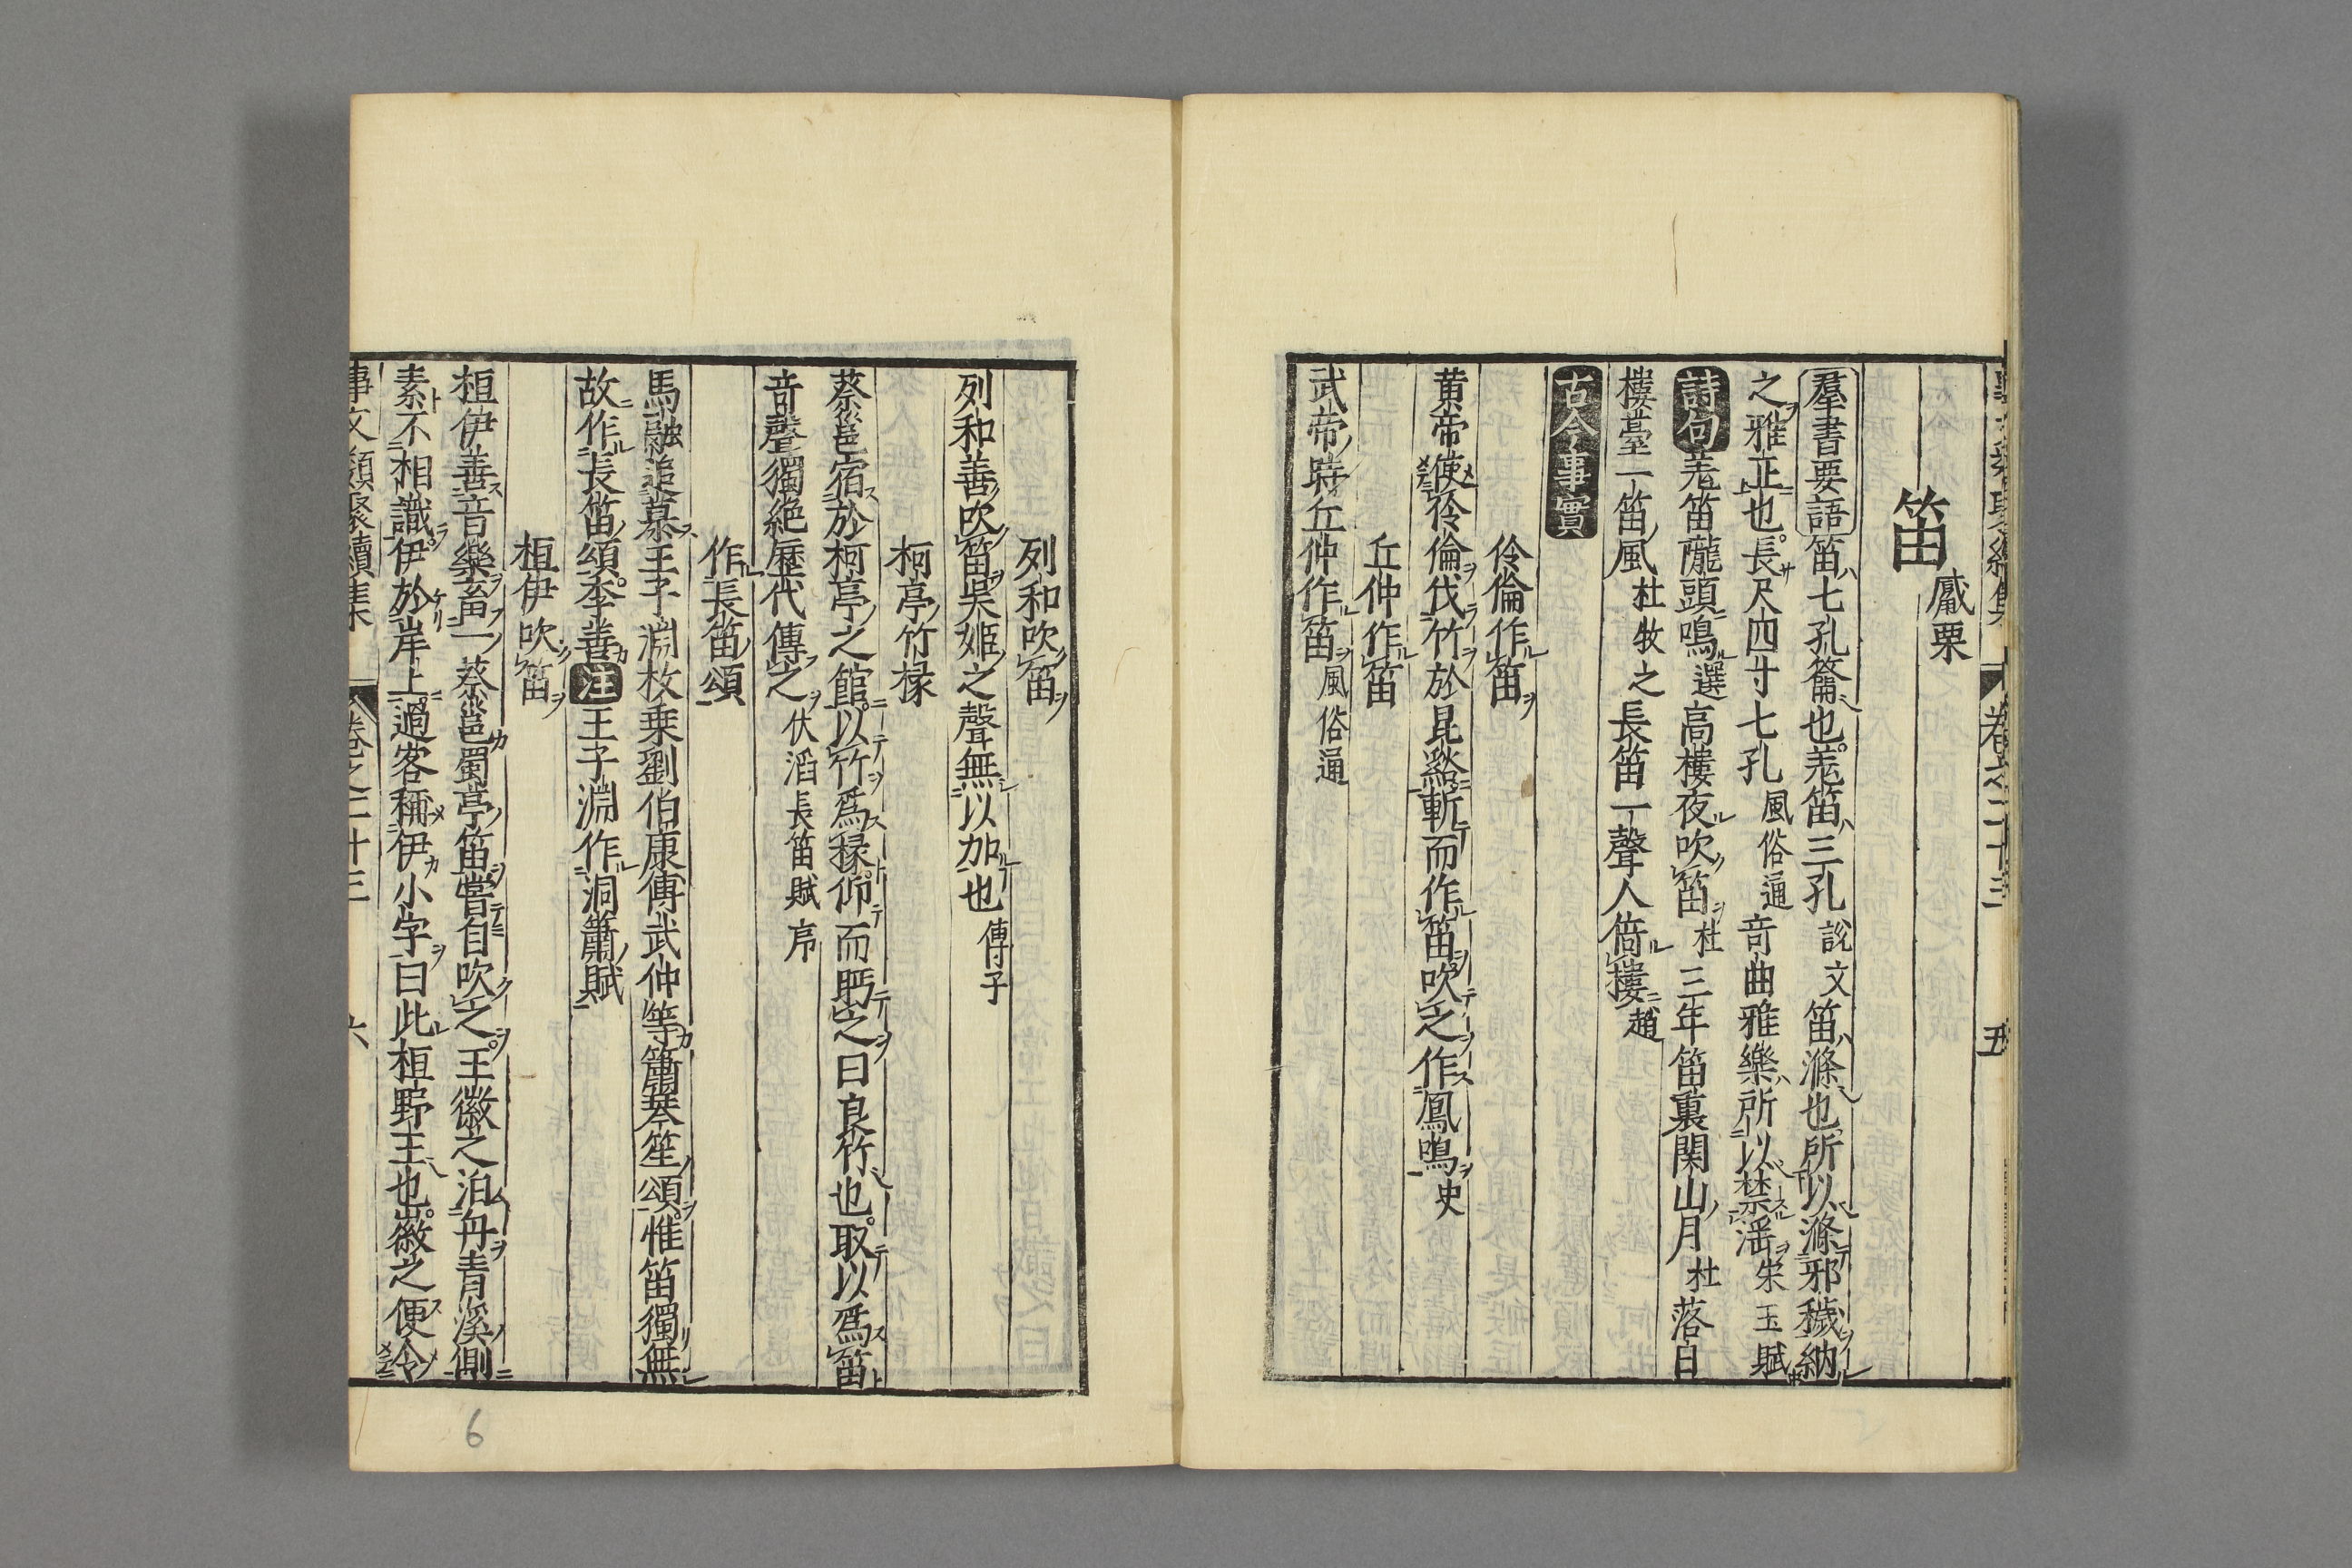 卷之二十三 五
笛 觱栗
羣書要語笛七孔籥也羌笛三孔說文笛滌也所以滌邪穢納
之雅正也長尺四寸七孔風俗通奇曲雅樂所以禁淫宋玉賦
詩句羌笛隴頭鳴選高樓夜吹笛杜三年笛裏関山月杜落日
樓臺一笛風杜牧之長笛一聲人倚樓趙
古今事實
伶倫作笛
黄帝使伶倫伐竹於昆谿斬而作笛吹之作鳳鳴史
丘仲作笛
武帝時丘仲作笛風俗通
列和吹笛
列和善吹笛吳姬之聲無以加也傅子
柯亭竹椽
蔡邕宿於柯亭之館以竹爲椽仰而眄之曰良竹也取以爲笛
奇聲獨絶歷代傳之伏滔長笛賦序
作長笛頌
馬融追慕王子淵枚乗劉伯康傅武仲等簫琴笙頌惟笛獨無
故作長笛頌李善注王子淵作洞簫賦
桓伊吹笛
桓伊善音樂畜一蔡邕蜀亭笛嘗自吹之王徽之泊舟青溪側
素不相識伊於岸上過客稱伊小字曰此桓野王也徽之便令
事文類聚續集 卷之二十三 六
6